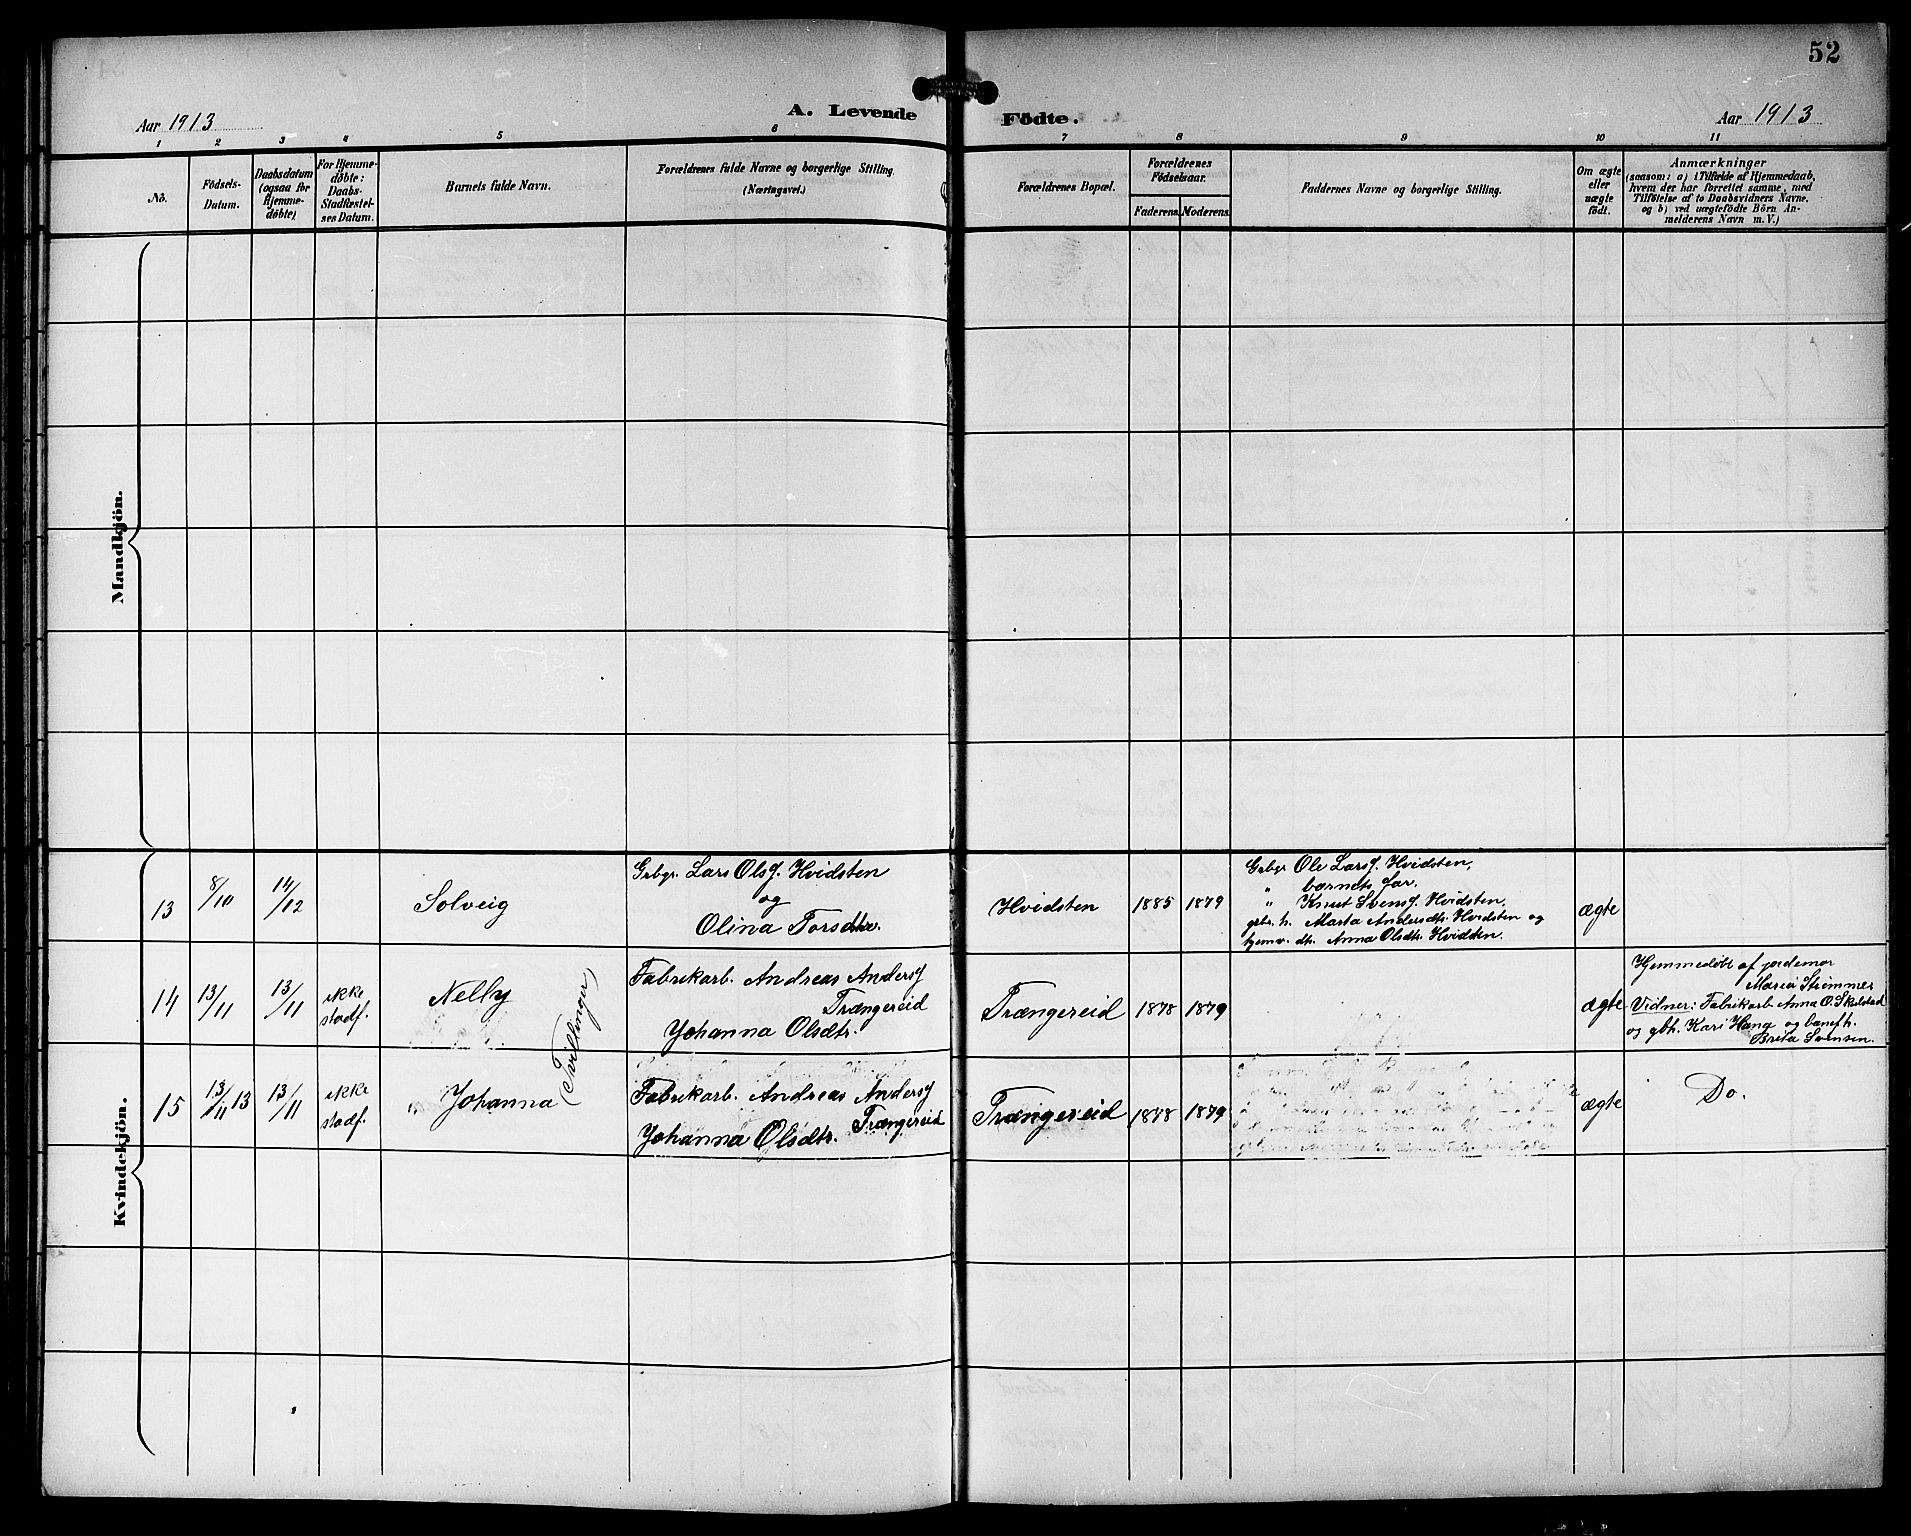 52
Aar 1913
A. Levende Födte.
Aar 1913
1 2 3 4 5 6 7 8 9 10 11
No.
Födsels-
Datum.
Daabsdatum
(ogsaa for
Hjemme-
döbte)
For Hjemme-
döbte:
Daabs-
Stadfæstel-
ses Datum.
Barnets fulde Navn.
Forældrenes fulde Navne og borgerlige Stilling.
(Næringsvei.)
Forældrenes Bopæl.
Forældrenes
Födselsaar.
Faderens. Moderens.
Faddernes Navne og borgerlige Stilling.
Om ægte
eller
uægte
födt.
Anmærkninger
(saasom: a) i Tilfælde af Hjemmedaab,
hvem der har forrettet samme, med
Tilföielse af to Daabsvidners Navne,
og b) ved uægtefödte Börn An-
melderens Navn m. V.)
Mandkjön.
Kvindekjön.
13
8/10
14/12
Solveig
Grbgr. Lars Olsf. Hvidsten
og
Olina Torsdtr.
Hvidsten
1885
1879
Grbgr Ole Larsf. Hvidsten,
" barnets far.
" Knut Svensf. Hvidsten,
gbr. h. Marta Andersdtr. Hvidsten og
hjemv. dtr. Anna Olsdtr. Hvidsten.
ægte
14
13/11
13/11
ikke
stadf.
Nelly
(Tvillinger)
Fabrikarb. Andreas Andersf
Trængereid
Johanna Olsdtr.
Trængereid
1878
1879
ægte
Hjemmedöbt af jordemor
Maria Stimmer
Vidner: Fabrikarb. Anna O. Skulstad
og gbh. Kari Haug og banefh.
Brita Svensen.
15
13/11 13
13/11
ikke
stadf.
Johanna
Fabrikarb. Andreas Andersf
Trængereid
Johanna Olsdtr.
Trængereid
1878
1879
ægte
Do.